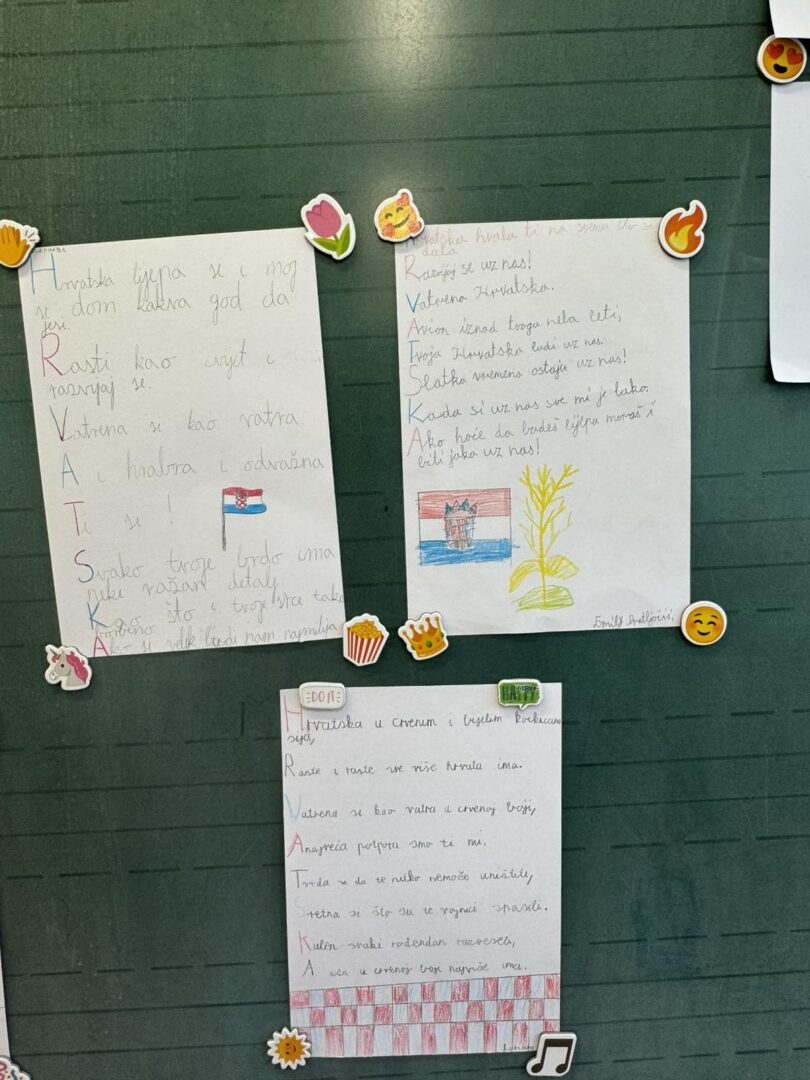 Hrvatska lijepa se i moj
se dom kakva god da
jesi.
Rasti kao cvijet i
razvijaj se.
Vatrena se kao vatra.
A i hrabra i odvažna
Ti se!
Svako tvoje brdo ima
neki važan detalj
Kao što i tvoje srce tako
borbeno
Ako se velik budi nam najmilija
Hrvatska hvala ti na svemu što se
dala
Razvijaj se uz nas!
Vatrena Hrvatska.
Avion iznad tvoga neba leti,
Tvoja Hrvatska ludi uz nas.
Slatka vremena ostaju uz nas!
Kada si uz nas sve mi je lako.
Ako hoće da budeš lijepa moraš i
biti jaka uz nas!
Emily
DO IT
Hrvatska u crvenim i bijelim kockicama
sija,
Raste i raste sve više hrvata ima.
Vatrena se kao vatra u crvenoj boji,
A najveća potpora smo ti mi.
Tvrda se da te nitko nemože uništiti,
Sretna si što su te vojnici spasili.
Kulen svaki rođendan razveseli,
A uda u crvenoj boje najviše ima.